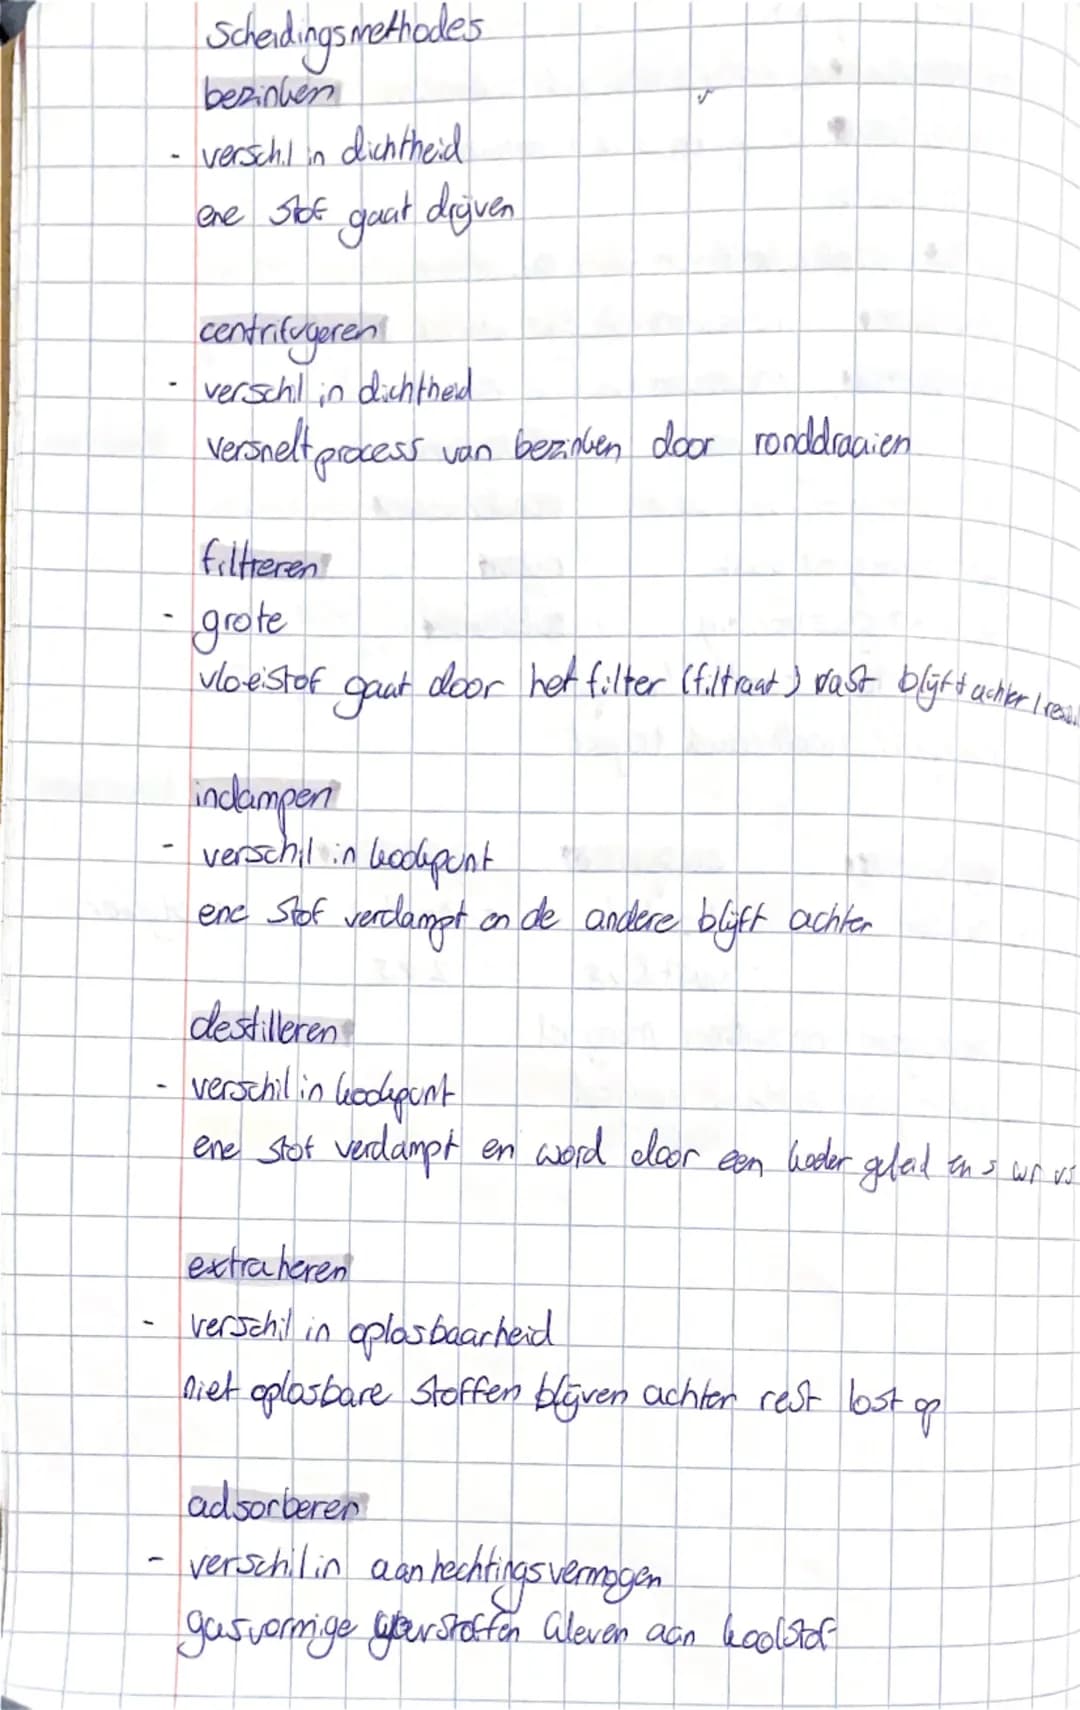 scheidingsmethodes
bezinken
- verschil in dichtheid
ene stof gaat drijven
centrifugeren
- verschil in dichtheid
versnelt process van bezinken door ronddraaien
filtreren
- grote
vloeistof gaat door het filter (filtraat) vast blijft achter
indampen
- verschil in kookpunt
ene stof verdampt en de andere blijft achter
destilleren
- verschil in kookpunt
ene stof verdampt en word door een koeler geleid
extraheren
- verschil in oplosbaarheid
niet oplosbare stoffen blijven achter rest lost op
adsorberen
- verschil in aanhechtingsvermogen
gasvormige geurstoffen kleven aan koolstof